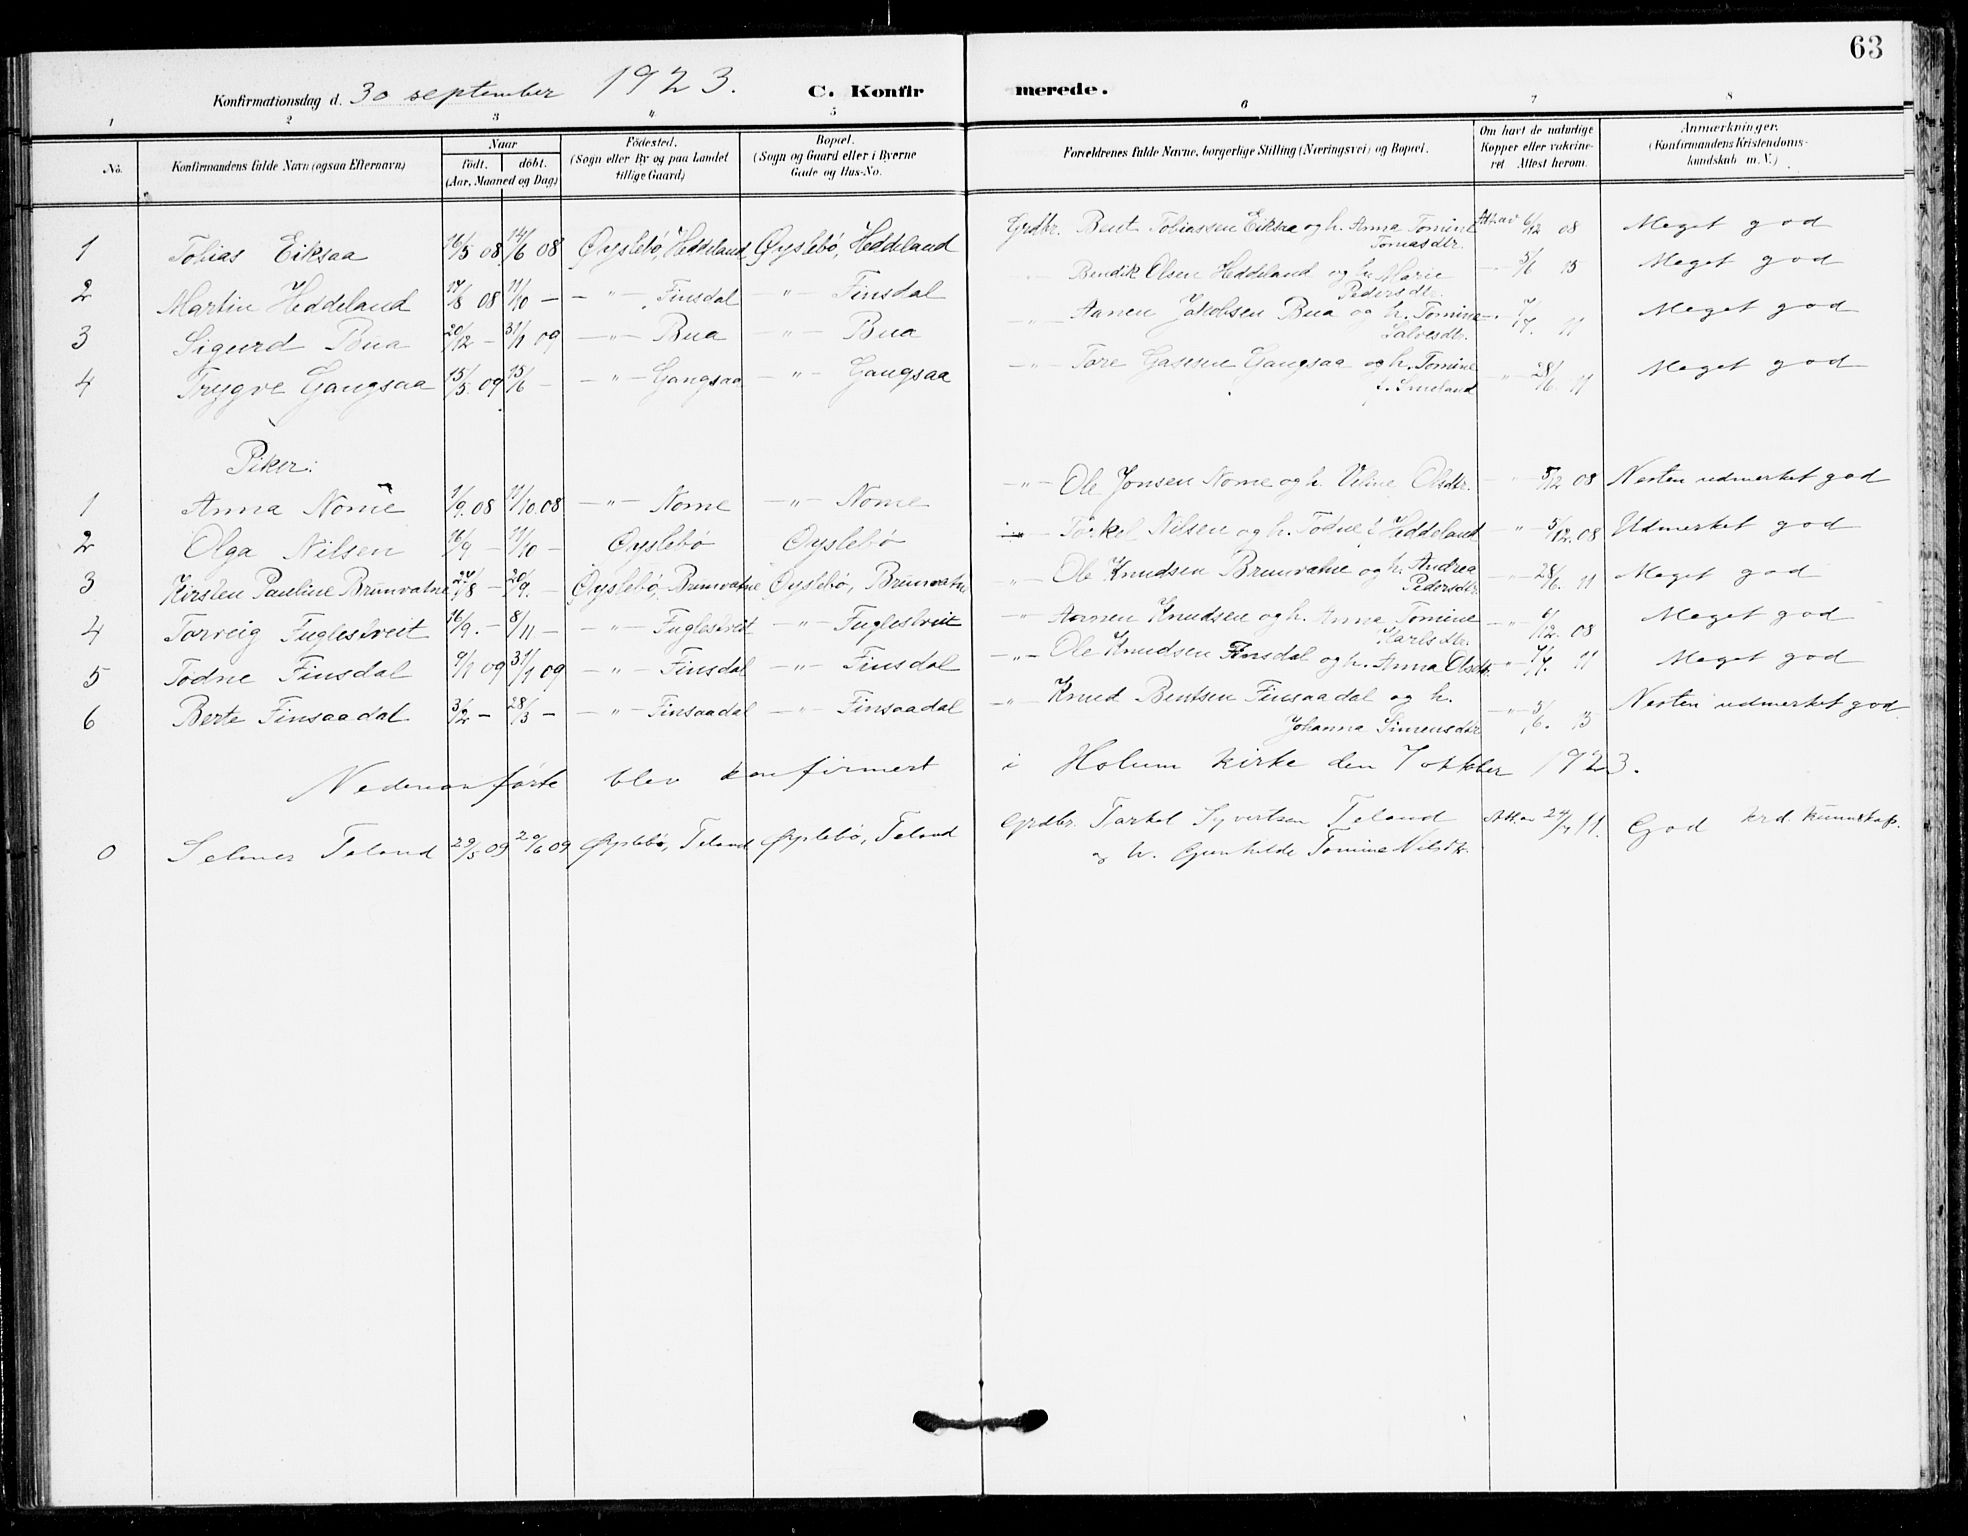 63
Konfirmationsdag d. 30 september 1923. C. Konfirmerede.
1 2 3 " 5 6 7 8
No. Konfirmandens fulde Navn (ogsaa Efternavn) Naar født. døbt. (Aar, Maaned og Dag) Fødested. (Sogn eller By og paa Landet tillige Gaard) Bopæl. (Sogn og Gaard eller i Byerne Gade og Hus-No. Forældrenes fulde Navne, borgerlige Stilling (Næringsvei) og Bopæl. Om havt de naturlige Kopper eller vakcineret Attest herom. Anmærkninger. (Konfirmandens Kristendomskundskab m. V.)
1 Tobias Eiksaa 16/5 08 14/6 08 Øyslebø, Heddeland Øyslebø, Heddeland Grdbr. Bent Tobiassen Eiksaa og h. Anna Tomine Tomasdtr. Att. av 6/12 08 Meget god
2 Martin Heddeland 17/8 08 11/10 — — " — Finsdal — " — Finsdal — " — Bendik Olsen Heddeland og h. Marie Pedersdtr. — " — 5/6 15 Meget god
3 Sigurd Bua 20/12 — 31/1 09 — " — Bua — " — Bua — " — Aanen Jakobsen Bua og h. Tomine Salvesdtr. " 7/7. 11 Meget god
4 Trygve Gangsaa 15/5. 09 13/6 — — " — Gangsaa — " — Gangsaa — " — Tore Gasesen Gangsaa og h. Tomine f. Smeland — " — 28/6. 11 Meget god
Piker:
1 Anna Nome 1/9. 08 11/10. 08 — " — Nome — " — Nome — " — Ole Jonsen Nome og h. Veline Olsdtr. — " — 5/12 08 Nesten udmerket god
2 Olga Nilsen 16/9 — 11/10 — Øyslebø Øyslebø — " — Torkel Nilsen og h. Todne f. Heddeland — " — 5/12. 08 Udmerket god
3 Kirsten Pauline Brunvatne 24/8 — 20/9. — Øyslebø, Brunvatne Øyslebø, Brunvatne — " — Ole Knudsen Brunvatne og h. Andrea Pedersdtr. — " — 28/6. 11 Meget god
4 Torveig Fuglestveit 16/9. — 8/11 — — " — Fuglestveit — " — Fuglestveit — " — Aanen Knudsen og h. Anna Tomine Karlsdtr. — " — 6/12. 08 Meget god
5 Todne Finsdal 9/1 09 31/1 09 — " — Finsdal — " — Finsdal — " — Ole Knudsen Finsdal og h. Anna Olsdtr. — " — 7/7. 11 Meget god
6 Berte Finsaadal 3/2 — 28/3 — — " — Finsaadal — " — Finsaadal — " — Knud Bentsen Finsaadal og h. Johanna Simensdtr — " — 5/6. 15 Nesten udmerket god
Nedenanførte blev konfirmert i Holum kirke den 7 oktober 1923.
0 Selmer Teland 29/5 09 20/6 09 Øyslebø, Teland Øyslebø, Teland Grdbr. Tarkel Syvertsen Teland og h. Gunhilde Tomine Nilsdtr. Att. av 11. God krd. kunnskap.